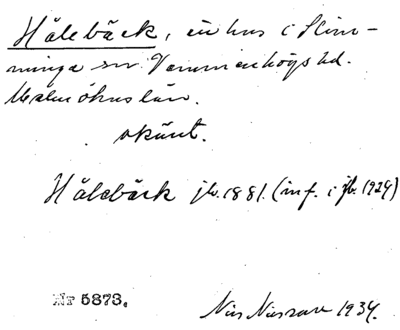 Hålebäck, ett hus i Slim-
minge sn Vemmenhögs hd.
Malmöhus län.
okänt.
Hålebäck jb. 1881. (inf. i jb. 1924)
Nr 5873.
Nils Nilsson 1934.